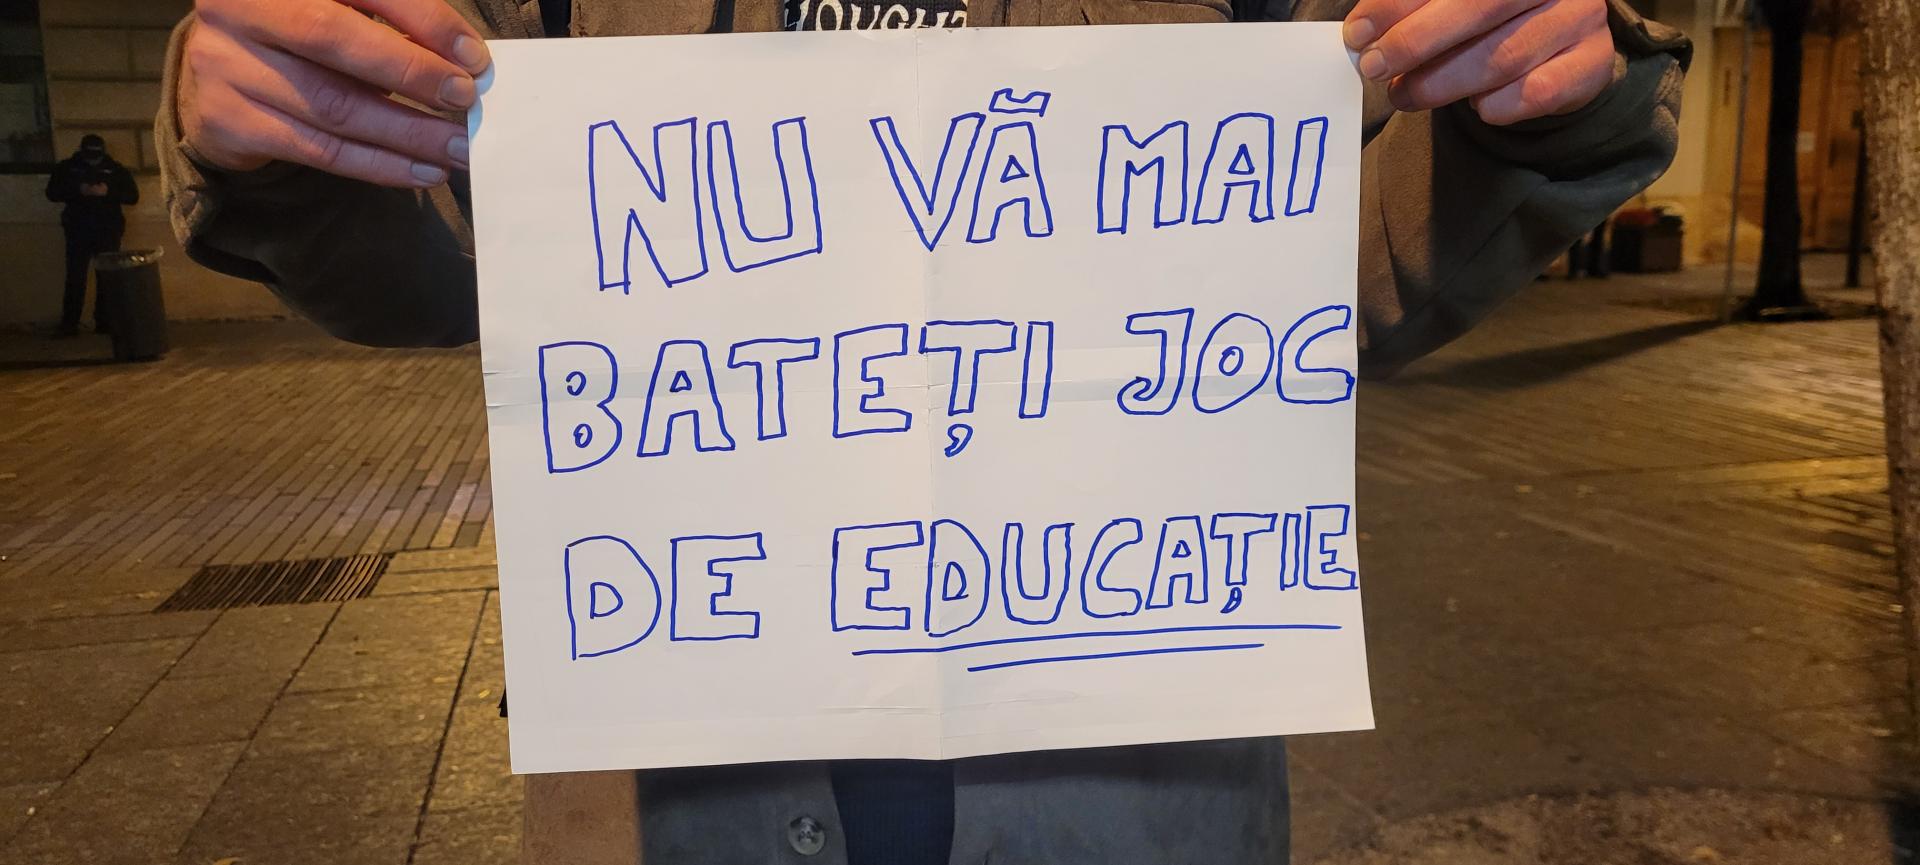 NU VĂ MAI
BATEȚI JOC
DE EDUCAȚIE